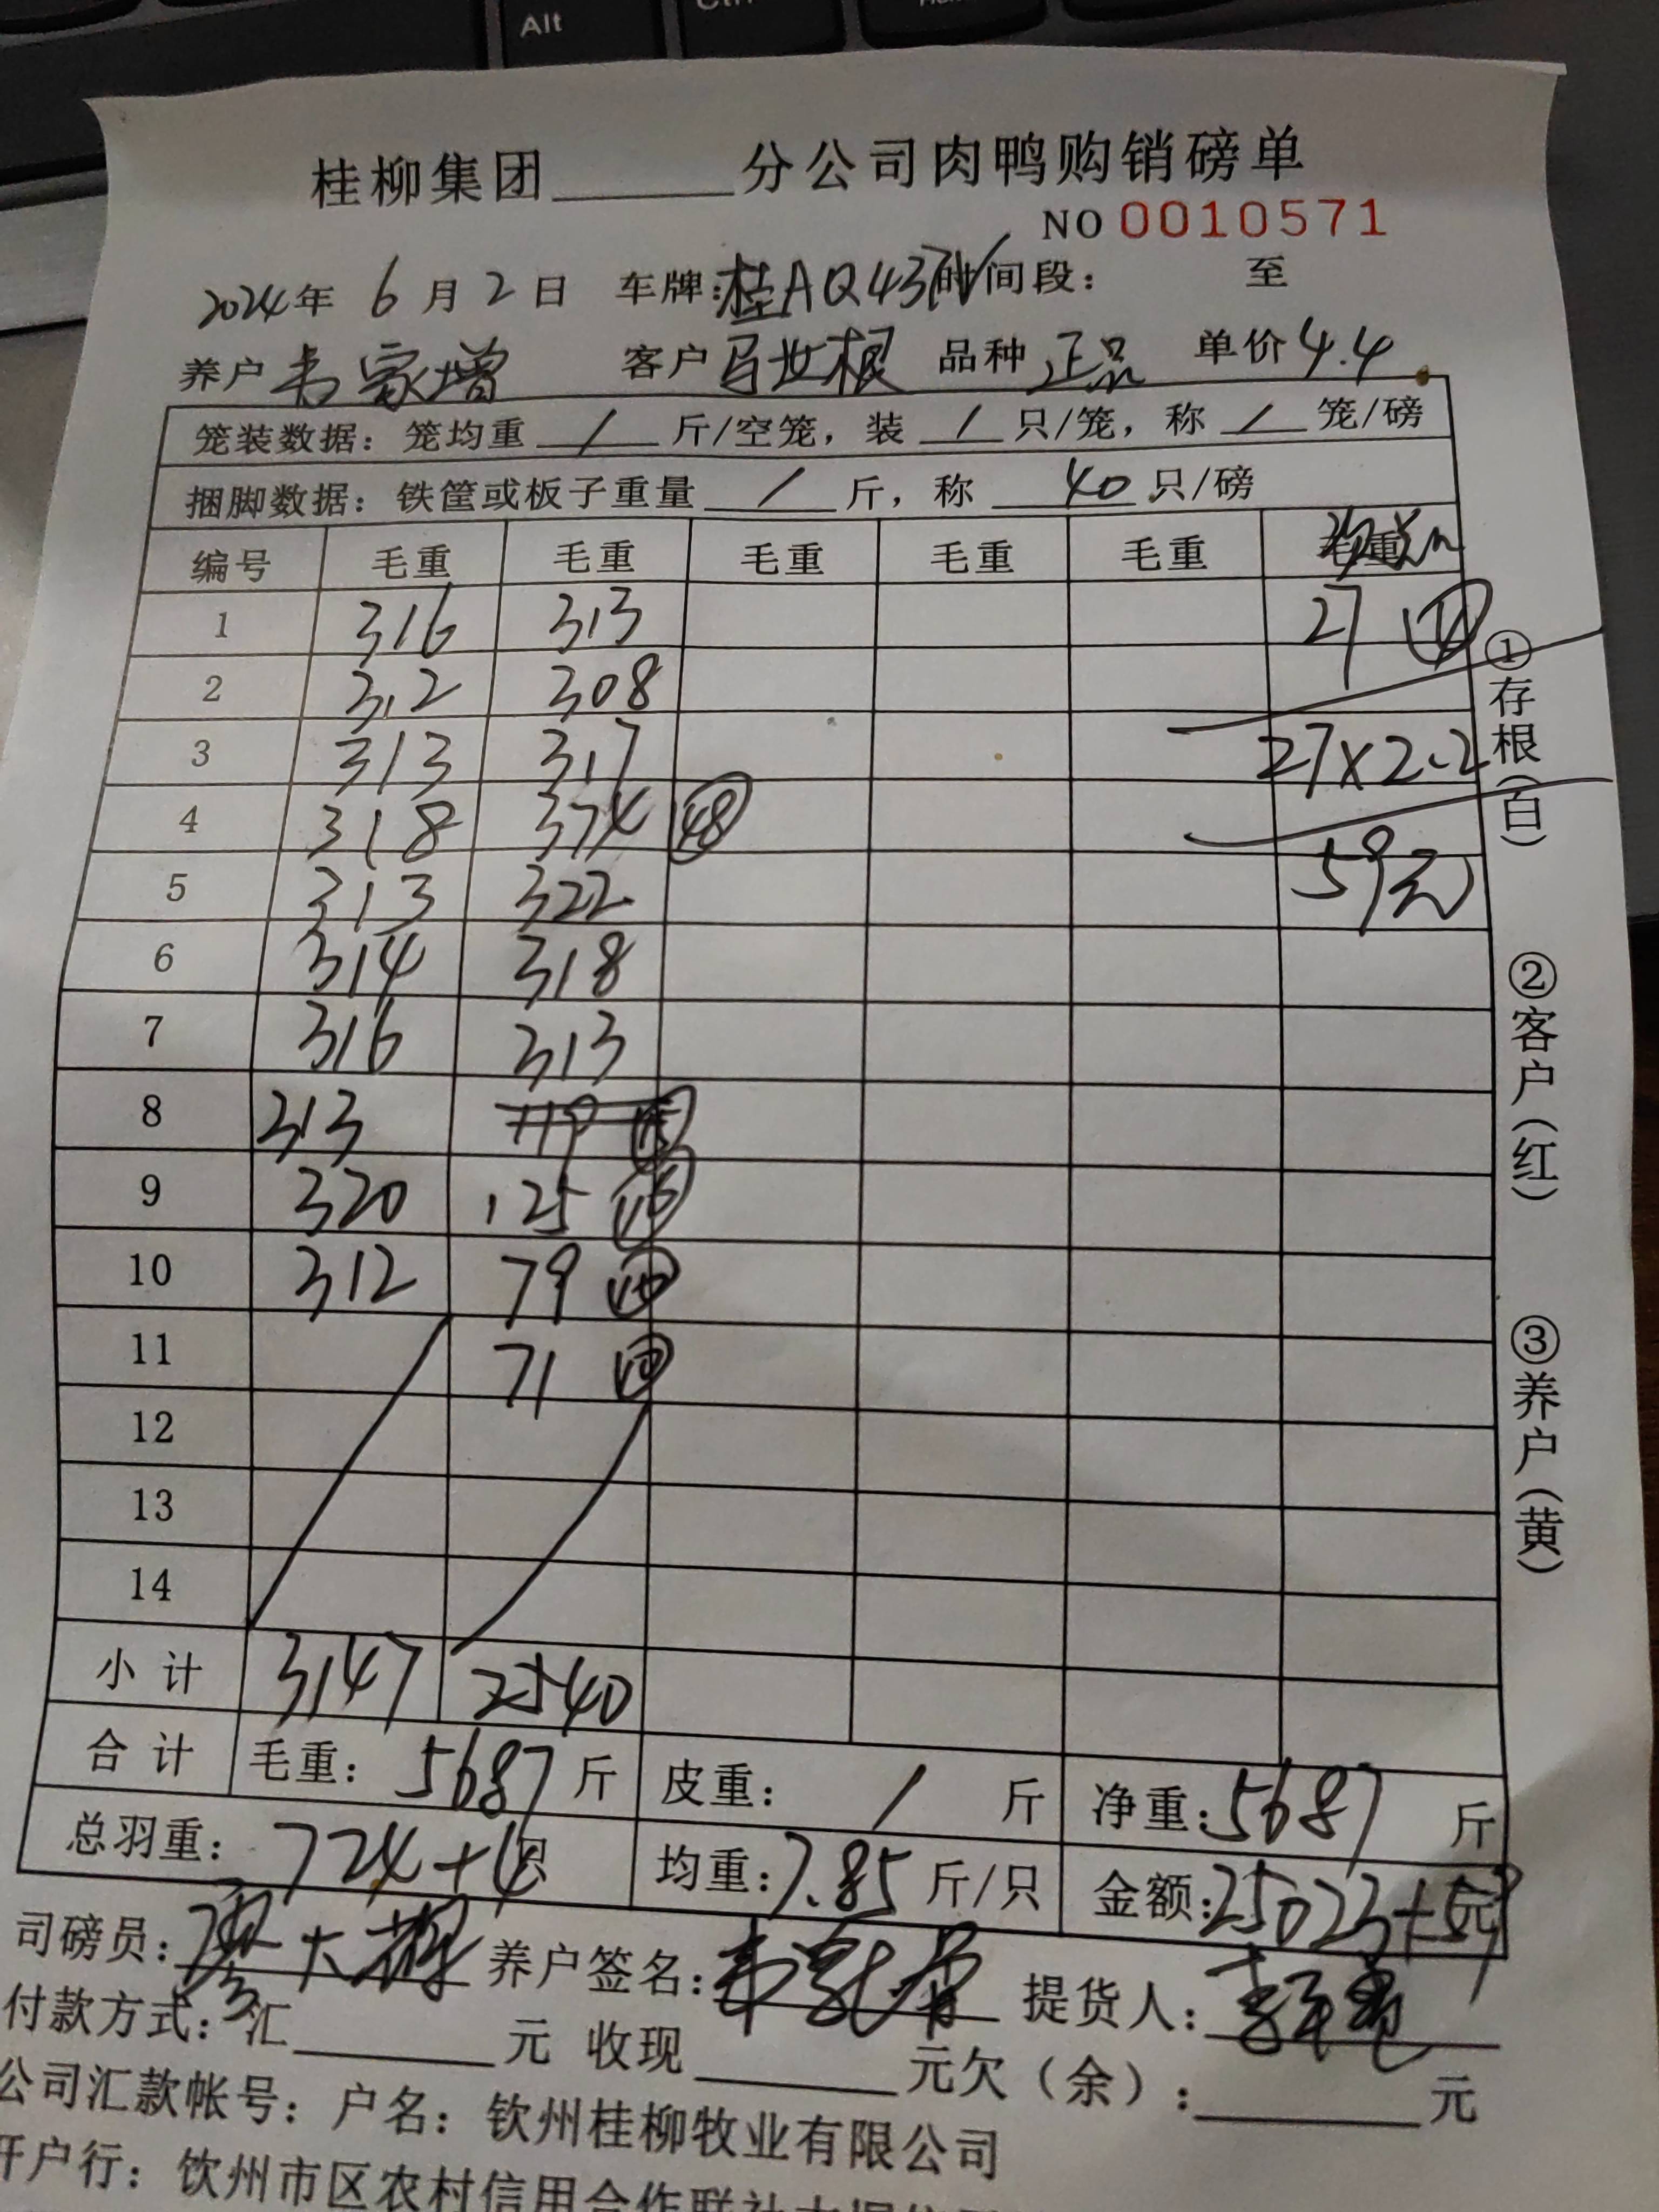 Alt
Ctrl
桂柳集团______分公司肉鸭购销磅单
NO 0010571
2024年 6月2日 车牌:桂AQ43 时间段: 至
养户 韦家增 客户 马世根 品种 正品 单价 4.4
笼装数据: 笼均重 / 斤/空笼, 装 / 只/笼, 称 / 笼/磅
捆脚数据: 铁筐或板子重量 / 斤, 称 40 只/磅
编号 毛重 毛重 毛重 毛重 毛重 毛重
1 316 313 27 ④
2 312 308
3 313 317 27×2.2
4 318 374 ㊽
5 313 322 59元
6 314 318
7 316 313
8 313 119 ⑮
9 320 125 ⑯
10 312 79 ⑩
11 71 ⑩
12
13
14
小计 3147 2540
合计 毛重: 5687 斤 皮重: / 斤 净重: 5687 斤
总羽重: 724+4只 均重: 7.85 斤/只 金额: 25023+59元
司磅员: 养户签名: 韦家增 提货人:
付款方式: 汇______元 收现______元欠(余):______元
公司汇款帐号: 户名: 钦州桂柳牧业有限公司
开户行: 钦州市区农村信用合作联社
①存根(白)
②客户(红)
③养户(黄)